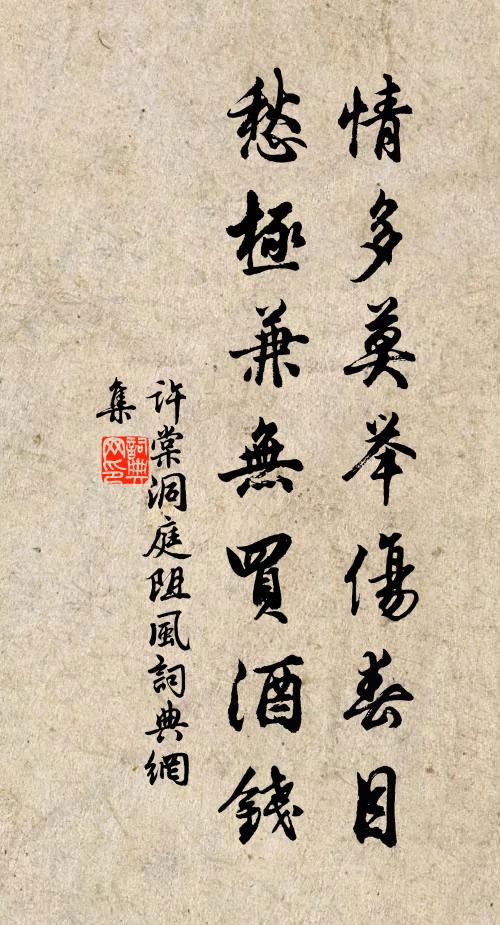 情多莫举傷春目
愁極兼無買酒錢
許棠洞庭阻風詞典網
集
詞典網印